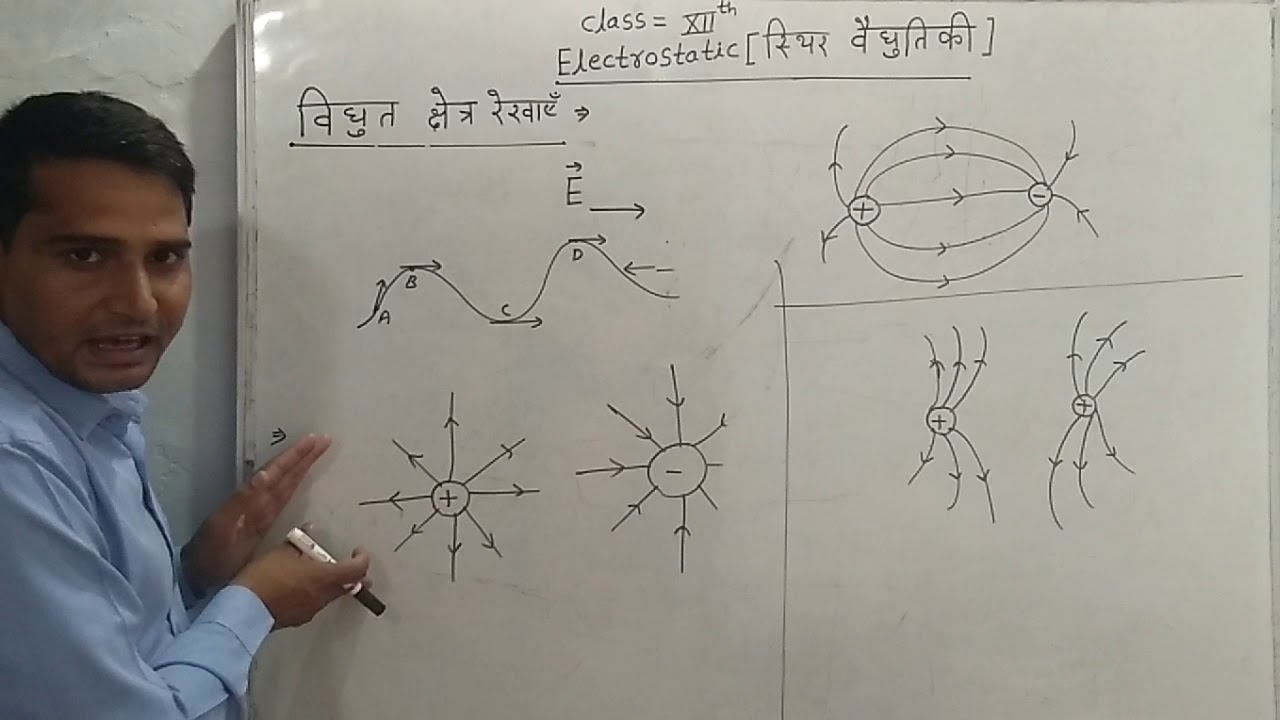 class = XIIth
Electrostatic [ स्थिर वैधुतिकी ]
विधुत क्षेत्र रेखाएँ ⇒
E
A
B
C
D
+
-
⇒
+
-
+
+